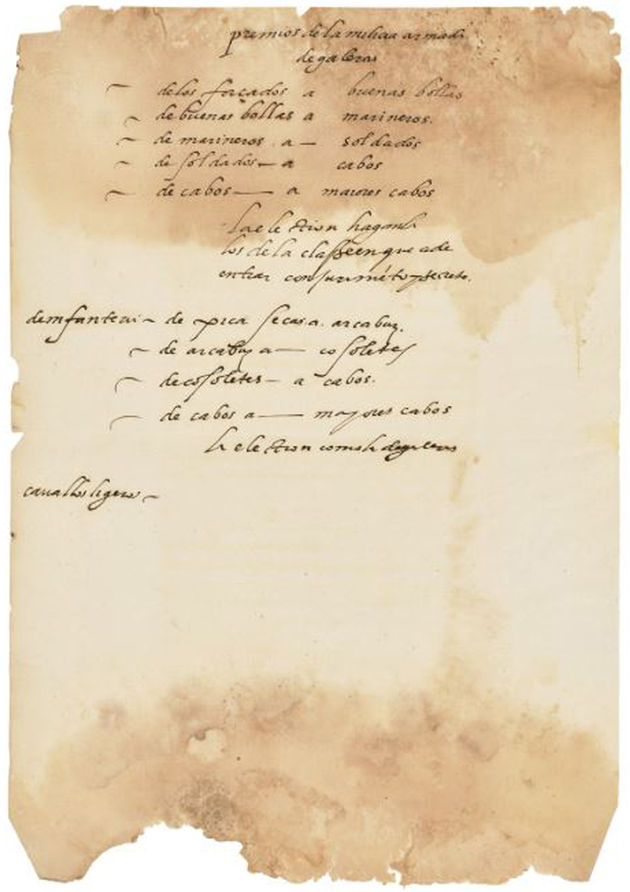 premios de la milicia armada
de galeras
~ de los forçados a buenas bollas
~ de buenas bollas a marineros.
~ de marineros a — soldados
~ de soldados — a cabos
~ de cabos — a maiores cabos
la election hagan
los de la classe en que a de
entrar con juramẽto y secreto.
de infanteria ~ de pica seca a arcabuz.
~ de arcabuz a — cosoletes
~ de cosoletes — a cabos.
~ de cabos a — mayores cabos
la election como la de galeras
cauallos ligeros ~